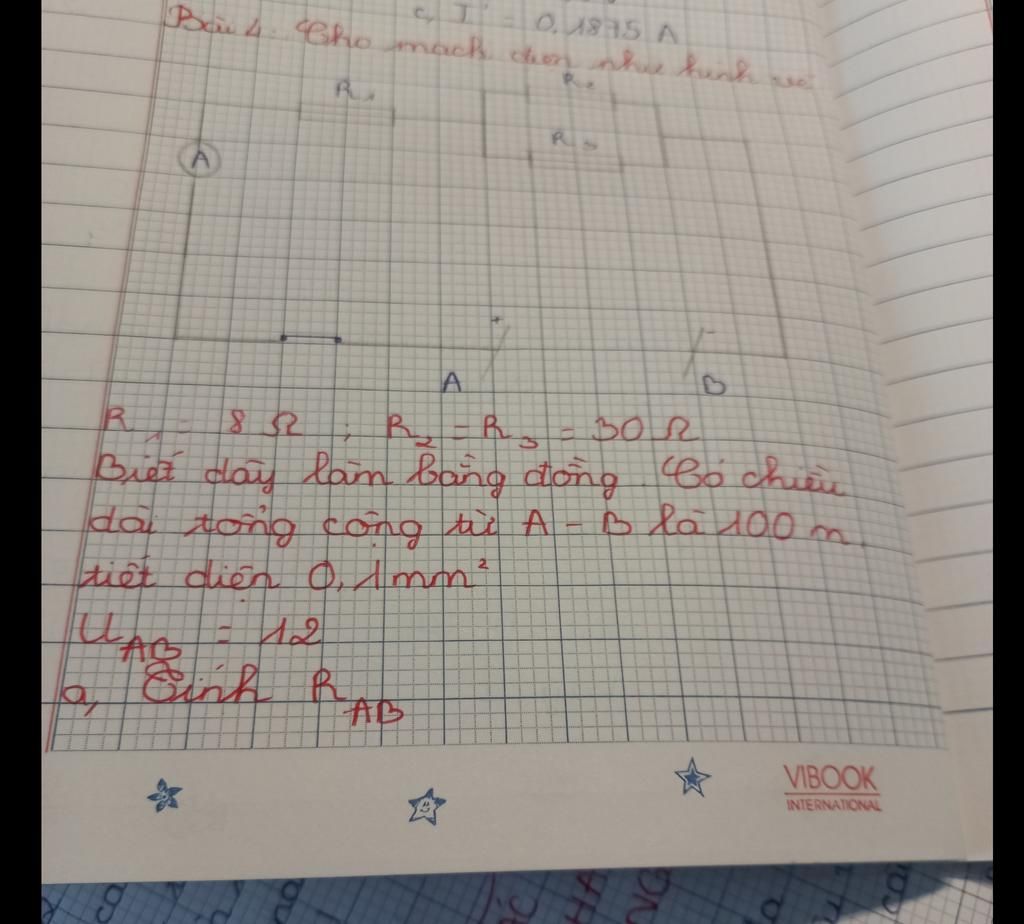 c, I = 0,1875 A
Bài 4. Cho mạch điện như hình vẽ
R1
R2
R3
A
+
-
A
B
R1 = 8 Ω ; R2 = R3 = 30 Ω
Biết dây làm bằng đồng. Có chiều
dài tổng cộng từ A - B là 100 m
tiết diện 0,1mm²
UAB = 12
a, Tính RAB
VIBOOK
INTERNATIONAL